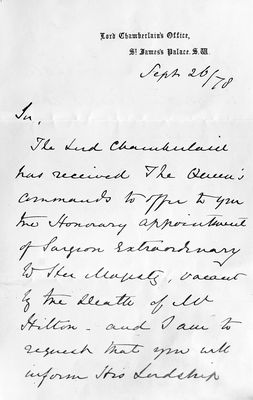 Lord Chamberlain's Office,
St James's Palace. S.W.
Sept 26/78
Sir,
The Lord Chamberlain
has received The Queen's
commands to offer to you
the Honorary appointment
of Surgeon Extraordinary
to Her Majesty, vacant
by the Death of Mr
Hilton - and I am to
request that you will
inform His Lordship